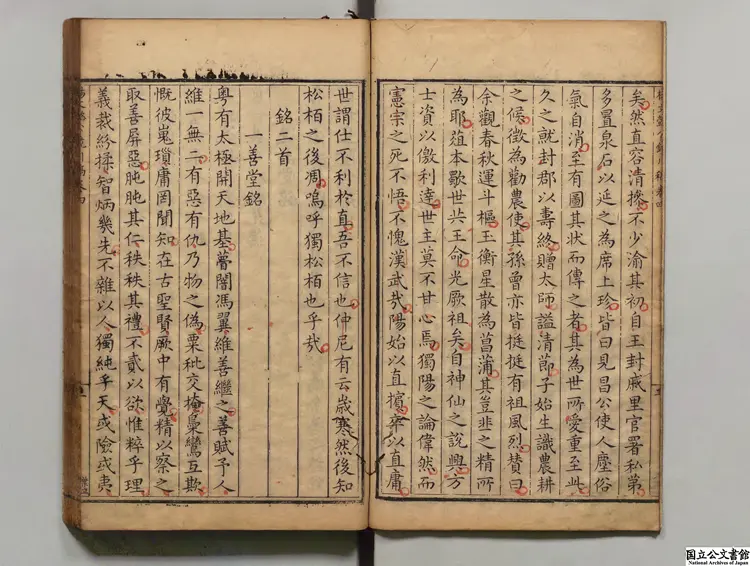 矣然直容清摻不少渝其初自王封戚里官署私第
多置泉石以延之為席上珍皆曰見昌公使人塵俗
氣自消至有圖其狀而傳之者其為世所愛重至此
久之就封郡以壽終贈太師謚清節子始生識農耕
之候徵為勸農使其孫曾亦皆挺挺有祖風烈贊曰
余觀春秋運斗樞玉衡星散為菖蒲其豈非之精所
為耶殖本歌世共王命光厥祖矣自神仙之說興方
士資以儌利達世主莫不甘心焉獨陽之論偉然而
憲宗之死不悟不愧漢武哉陽始以直擯卒以直庸
世謂仕不利於直吾不信也仲尼有云歲寒然後知
松柏之後凋嗚呼獨松柏也乎哉
銘二首
一善堂銘
粤有太極開天地基瞢闇馮翼維善繼之善賦予人
維一無二有惡有仇乃物之偽粟秕交掩梟鸞互欺
慨彼嵬瑣庸罔聞知在古聖賢厥中有覺精以察之
取善屏惡肫肫其仁秩秩其禮不貳以欲惟粹乎理
義裁紛揉智炳幾先不雜以人獨純乎天或險或夷
国立公文書館
National Archives of Japan